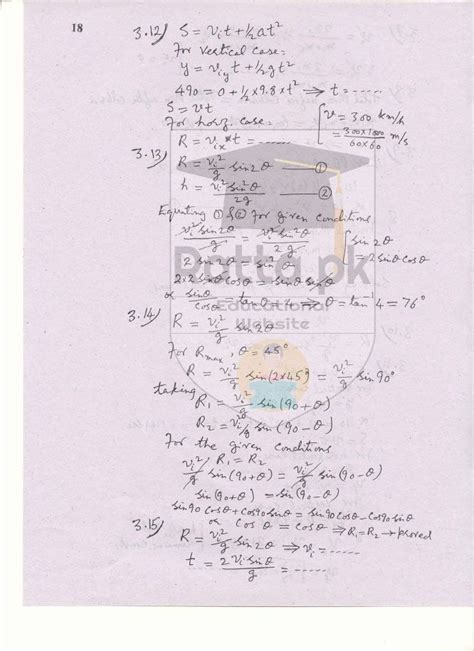 18
3.12) S = Vit + ½at²
For vertical case:
y = Viy t + ½gt²
490 = 0 + ½ × 9.8 × t² ⇒ t = -----
S = vt
For horz. case: { v = 300 km/h
R = Vix × t = ----- = 300 × 1000 / 60 × 60 m/s
3.13) R = Vi²/g sin2θ —— ①
h = Vi² sin²θ / 2g —— ②
Equating ① & ② for given conditions
Vi² sin2θ / g = Vi² sin²θ / 2g { sin2θ = 2sinθcosθ
2 sin2θ = sin²θ
2×2 sinθcosθ = sinθ sinθ
or sinθ/cosθ = tanθ = 4 ⇒ θ = tan⁻¹4 = 76°
Ratta.pk
Educational
Website
3.14) R = Vi²/g sin2θ
For Rmax, θ = 45°
R = Vi²/g sin(2×45°) = Vi²/g sin90°
taking
R₁ = Vi²/g sin(90+θ)
R₂ = Vi²/g sin(90-θ)
For the given conditions
R₁ = R₂
Vi²/g sin(90+θ) = Vi²/g sin(90-θ)
sin(90+θ) = sin(90-θ)
sin90cosθ + cos90sinθ = sin90cosθ - cos90sinθ
or cosθ = cosθ ⇒ R₁ = R₂ → proved
3.15) R = Vi²/g sin2θ ⇒ Vi = -----
t = 2Vi sinθ / g = -----